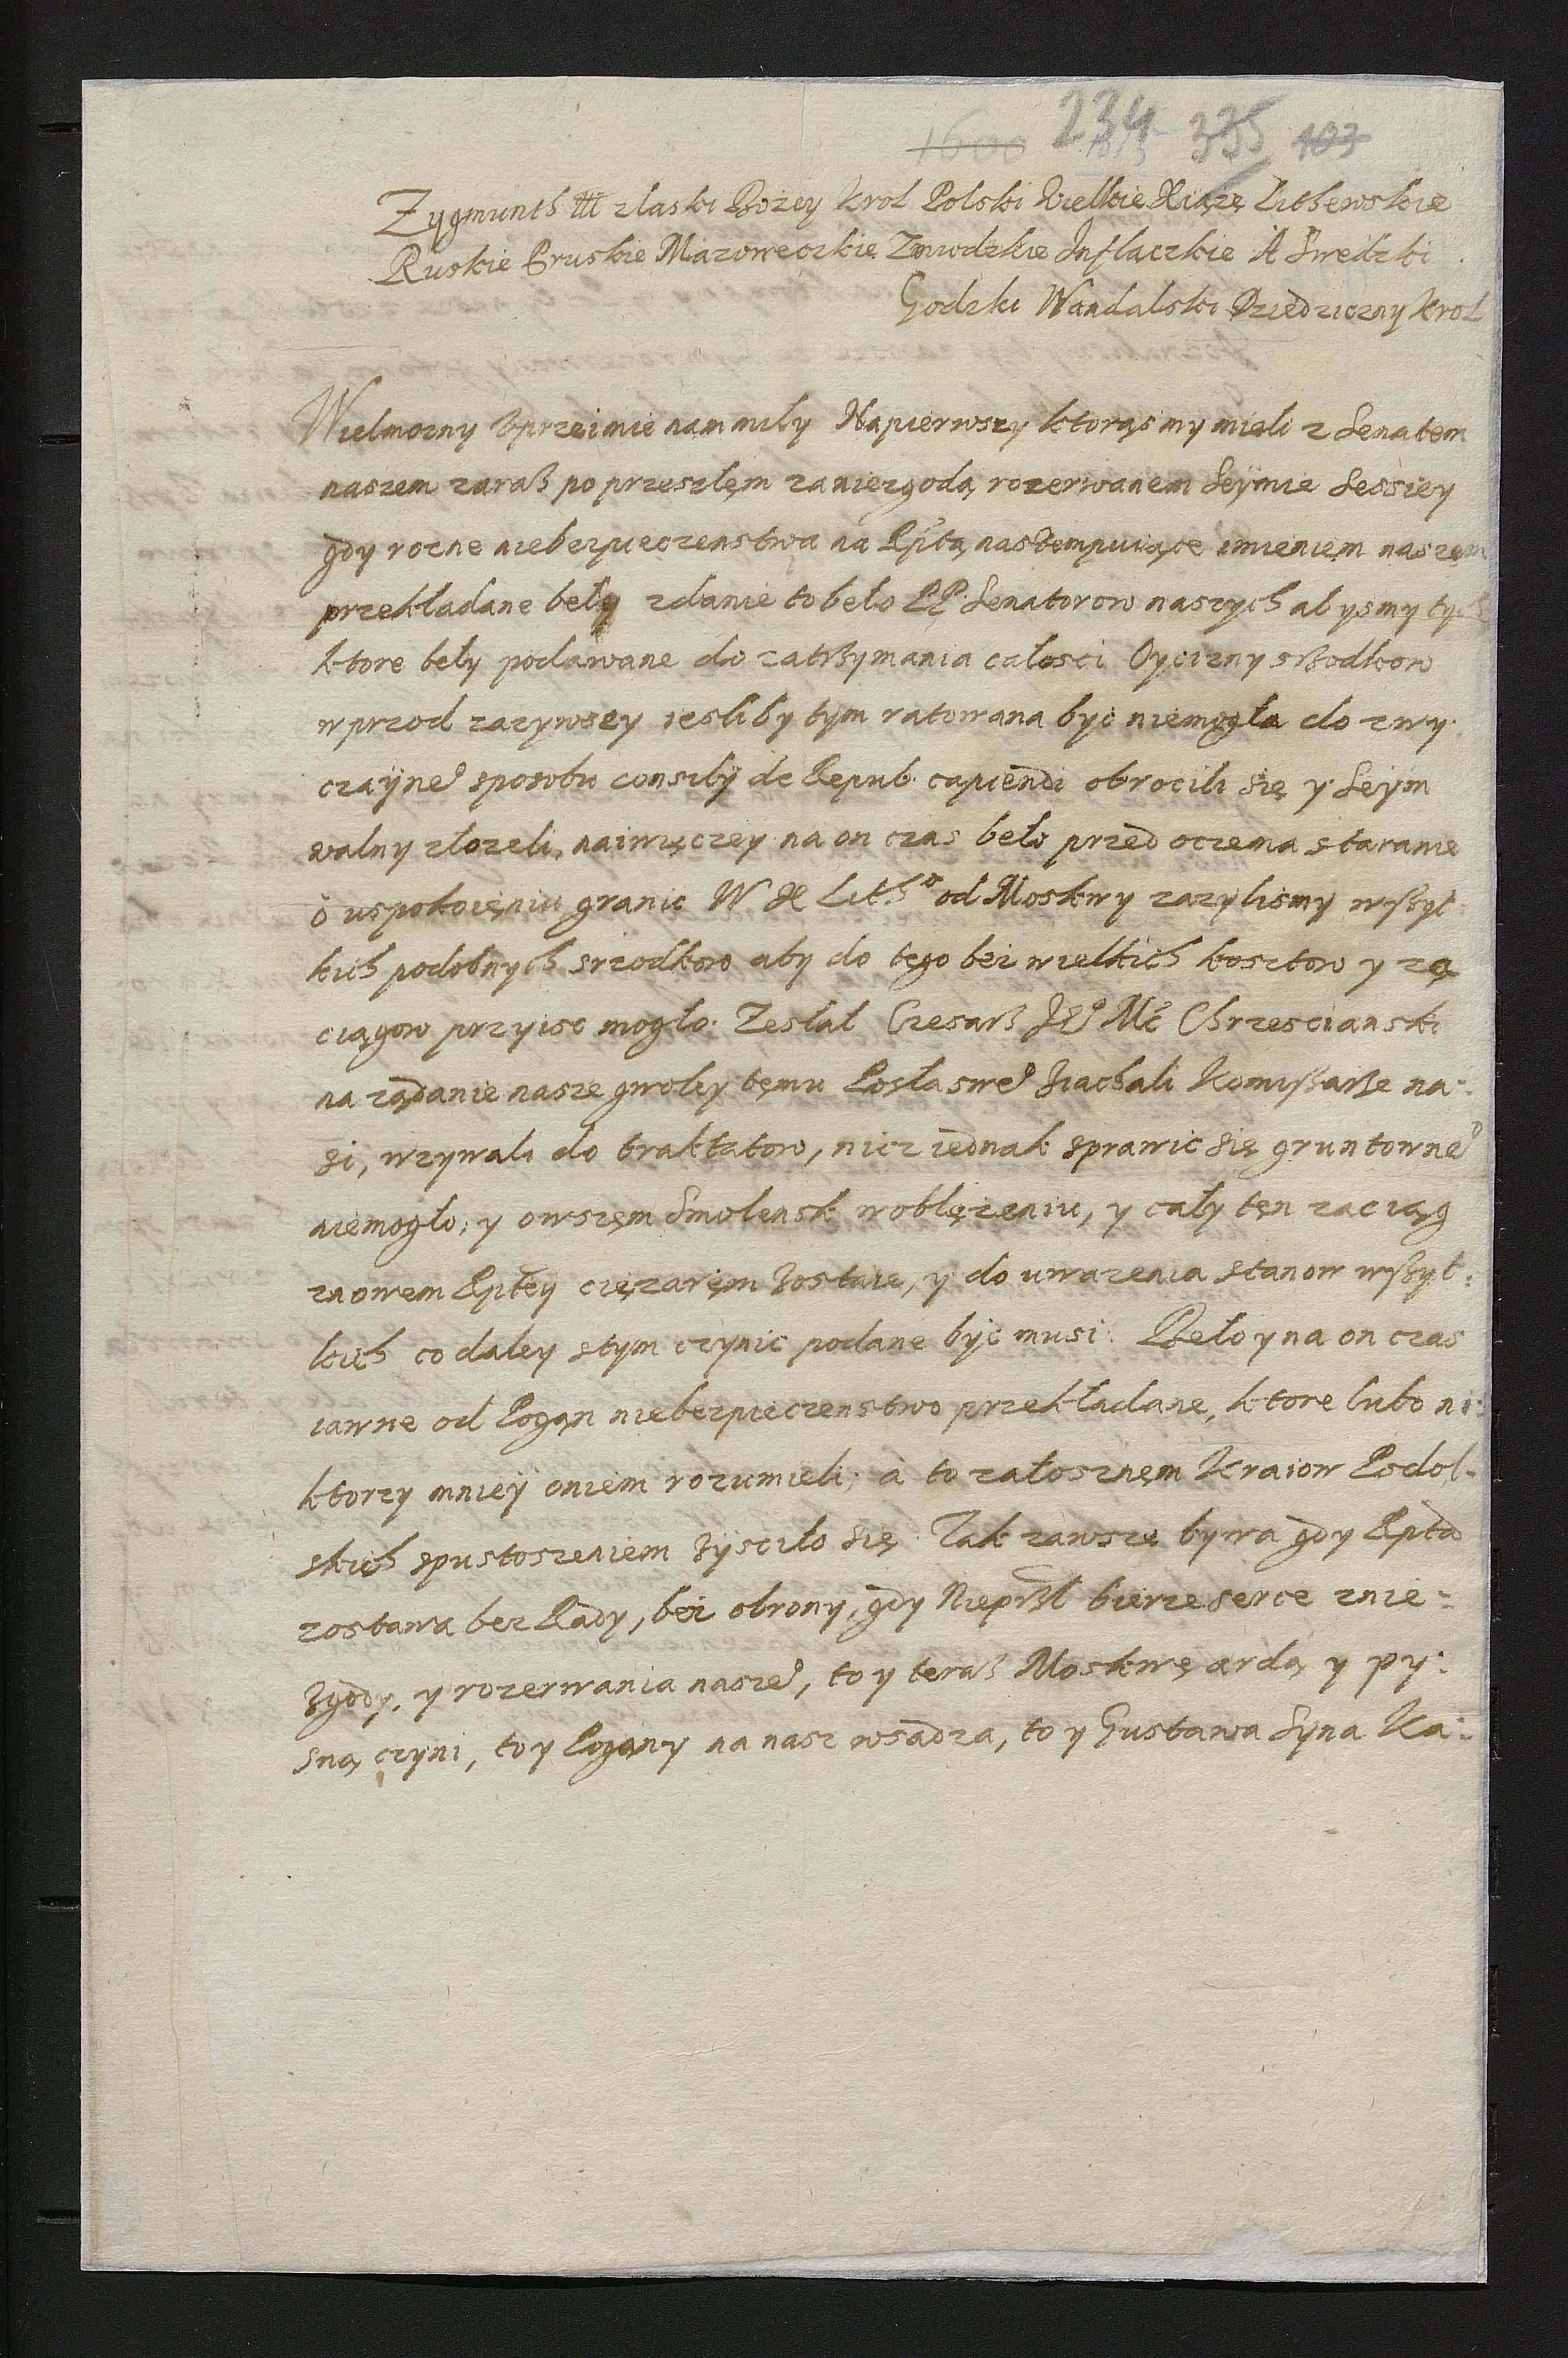 1600 234 335 103
1615
Zygmunth III z łaski Bozey Krol Polski Wielkie Xiązę Lithewskie
Ruskie Pruskie Mazoweczkie Zmudzkie Inflaczkie A Swedzki
Godzki Wandalski Dziedziczny Krol
Wielmozny Vprzeimie nam miły Napierwszy ktorąsmy mieli z Senatem
naszem zaraß po przeszłęm za niezgodą rozerwanem Seÿmie Sessiey
gdy rozne niebezpieczenstwa na Rptą nastempuiące imieniem naszem
przekładane beły zdanie to beło PP. Senatorow naszych abysmy tych
ktore beły podawane do zatrßymania całosci Oyczizny srßodkow
wprzod zazywszy iesliby tym ratowana byc niemogła do zwy:
czaÿneº sposobu consilÿ de Repub. capiendi obrocili się y Seÿm
walny złozeli, naiwięczey na on czas beło przed oczema staranie
o uspokoięniu granic W X Lithº od Moskwy zazylismy wßyt:
kich podobnych srzodkow aby do tego bez wielkich kosztow y za
ciągow przyisc mogło. Zesłał Czesarß Jeº Mc Chrzescianski
na ządanie nasze gwoli temu Posła sweº Ziachali Komißarße na:
si, wzywali do traktatow, nicz iednak sprawic się gruntowneº
niemogło; y owszęm Smolensk w oblęzeniu, y cały tęn zaciąg
znowem Rptey cięzaręm zostaie, y do uwazenia stanow wßyt:
kich co daley s tym czynic podane byc musi. Beło y na on czas
iawne od Pogan niebezpieczenstwo przekładane, ktore lubo nie:
ktorzy mniey oniem rozumieli; a to załosznęm Kraiow Podol-
skich spustoszeniem zysciło się. Tak zawsze bywa gdy Rpta
zostawa bez Rady, bez obrony, gdy Nieprßl bierze serce z nie:
zgody, y rozerwania naszeº, to y teraß Moskwę ardą y py:
sną czyni, to y Pogany na nasz wsadza, to y Gustawa Syna Ka: